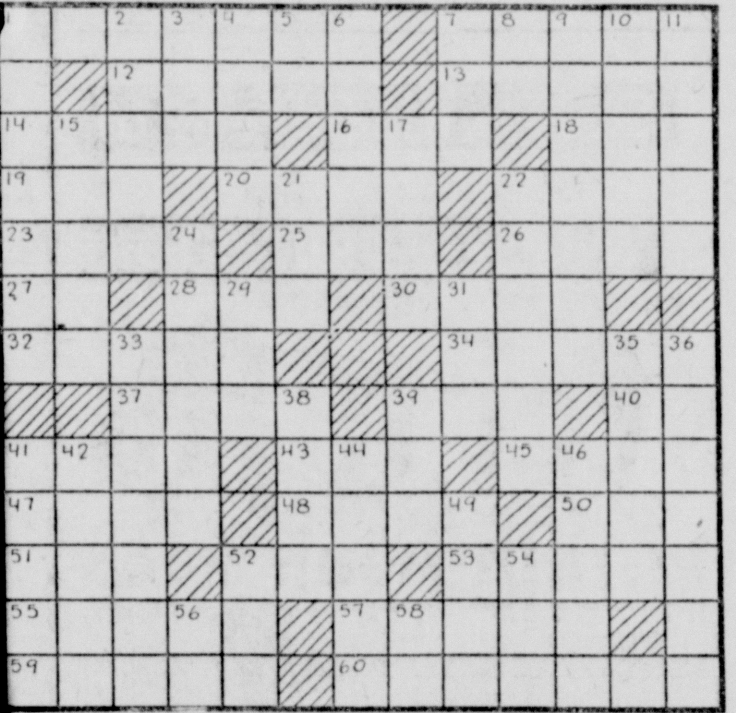 1 2 3 4 5 6 7 8 9 10 11
12 13
14 15 16 17 18
19 20 21 22
23 24 25 26
27 28 29 30 31
32 33 34 35 36
37 38 39 40
41 42 43 44 45 46
47 48 49 50
51 52 53 54
55 56 57 58
59 60